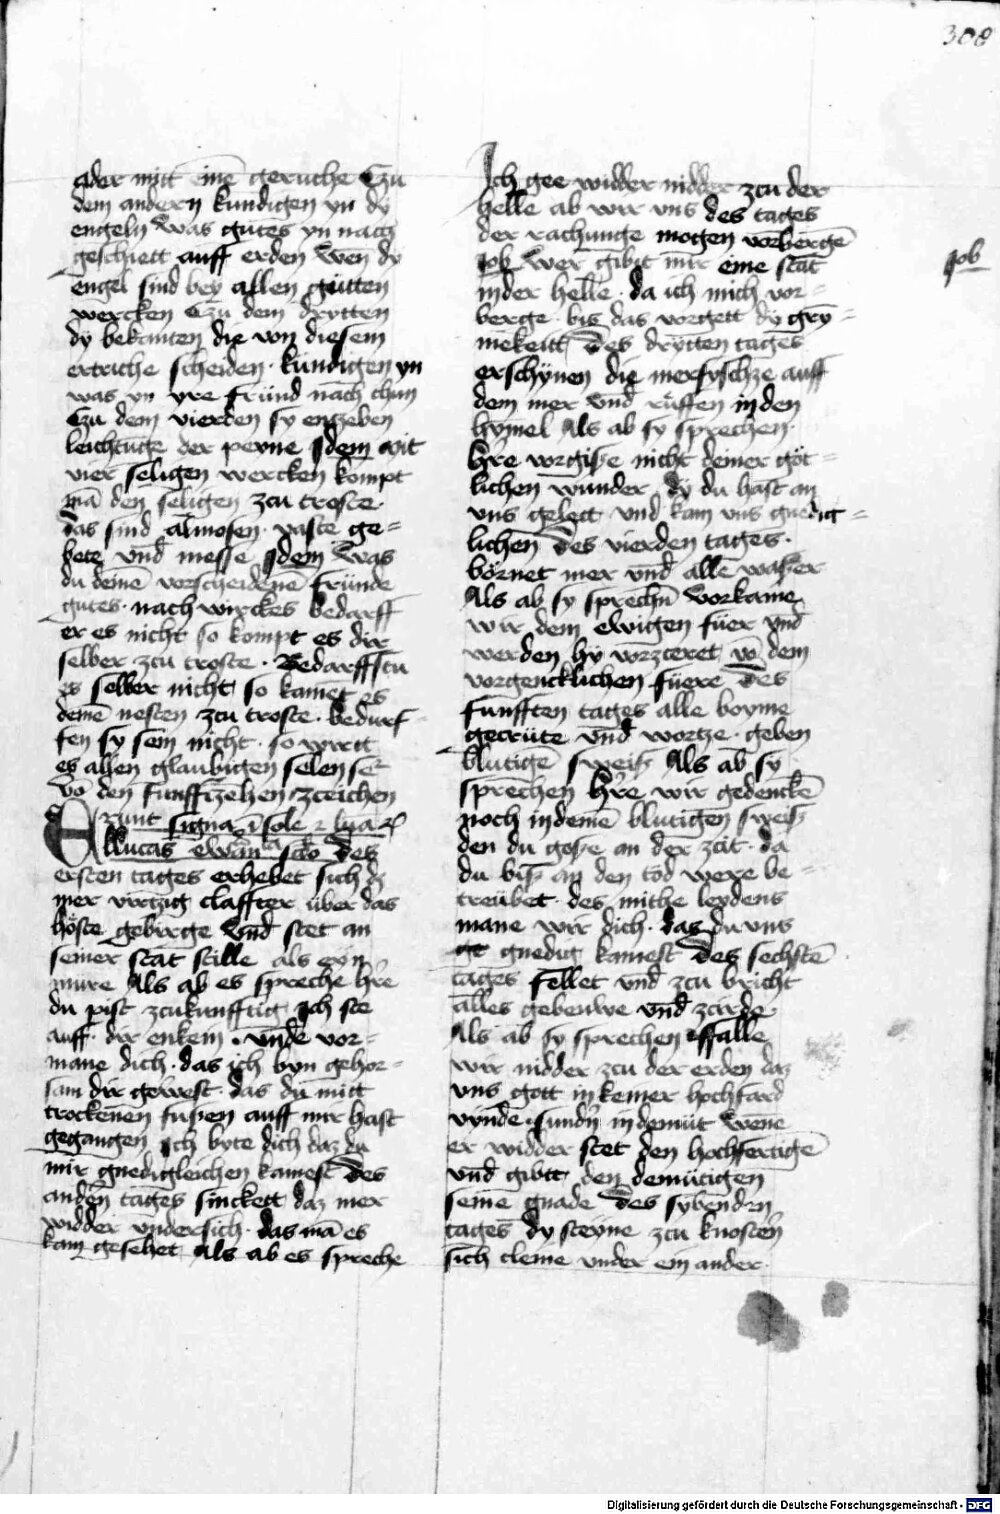 308
ader mitt eine͞ geruche Czu
dem andern kundigen yn dy
engeln was gutes yn nach
geschiett auff erden wen͞ dy
engel sind bey allen gutten
wercken Czu dem drytten
dy bekanten die von diesem
ertriche scheiden · kundigen yn
was yn yre fründ nach thun
Czu dem vierden sy entzeben
der peyne Jdem mit
vier seligen wercken kompt
ma͞ den seligen zcu troste ·
das sind almosen · vaste ge=
bete vnd messe Jdem was
du deine͞ vorscheidene͞ fründe
gutes · nach wirckes bedarff
er es nicht so kompt es dir
selber zcu troste · Bedarffstu
es selber nicht so kamet es
deine͞ nesten zcu troste · bedurf=
fen sy sein nicht · so wirtt
es allen glaubigen selen
vo͞ den funffzehen zceichen
Erunt signa i͞ sole
lucas ewan des
ersten tages erhebet sich dz
mer virtzig claffter über das
höste gebirge vnd stet an
seiner stat stille als eyn
mure Als ab es spreche h're
du pist zcukunfftig Ich ste
auff · dir enkein · vnde vor=
mane dich · das ich byn gehor=
sam dir gewest · das du mitt
trockenen fussen auff mir hast
gegangen Ich byte dich daz du
mir gnedigleichen kamest Des
anden͞ tages sinckett daz mer
widder vndersich · das ma͞ es
kam gesehet Als ab es spreche
Ich gee widder nidder zcu der
helle ab wir vns des tages
der rachunge mogen vorberge͞
Job wer gibit mir eine stat
in der helle · da ich mich vor=
berge · bis das vorgett dy gry=
mekeitt Des drytten tages
erschynen die merfyschze auff
dem mer vnd ruffen in den
hymel Als ab sy sprechen ·
h're vorgisse nicht deiner göt=
lichen wunder dy du hast an
vns gelett vnd kam vns gnedig=
lichen Des vierden tages ·
börnet mer vnd alle wasser
Als ab sy sprechn͞ vorkame
wir dem ewigen füer vnd
werden hy vorzceret vo͞ dem
vorgencklichen füere Des
funfften tages alle boyme
gecrüte vnd wortze · geben
blutige͞ sweiss Als ab sy
sprechen h're wir gedencke͞
noch in deine͞ blutigen sweiss
den du gosse an der zcit · da
du biss an den tod were be=
treübet · des mithe leydens
mane wir dich · das du vns
gnedig kamest Des sechste͞
tages fellet vnd zcu bricht
alles gebeuwe vnd zcirde
Als ab sy sprechen ffalle
wir nidder zcu der erden daz
vns gott in keiner hochfard
vynde · sundn͞ in demüt wene͞
er widder stet den hochfertige͞
vnd gibtt den demütigen
seine gnade Des sybenden
tages dy steyne zcu knosten͞
sich cleine vnder ein ander ·
Job
Digitalisierung gefördert durch die Deutsche Forschungsgemeinschaft - DFG